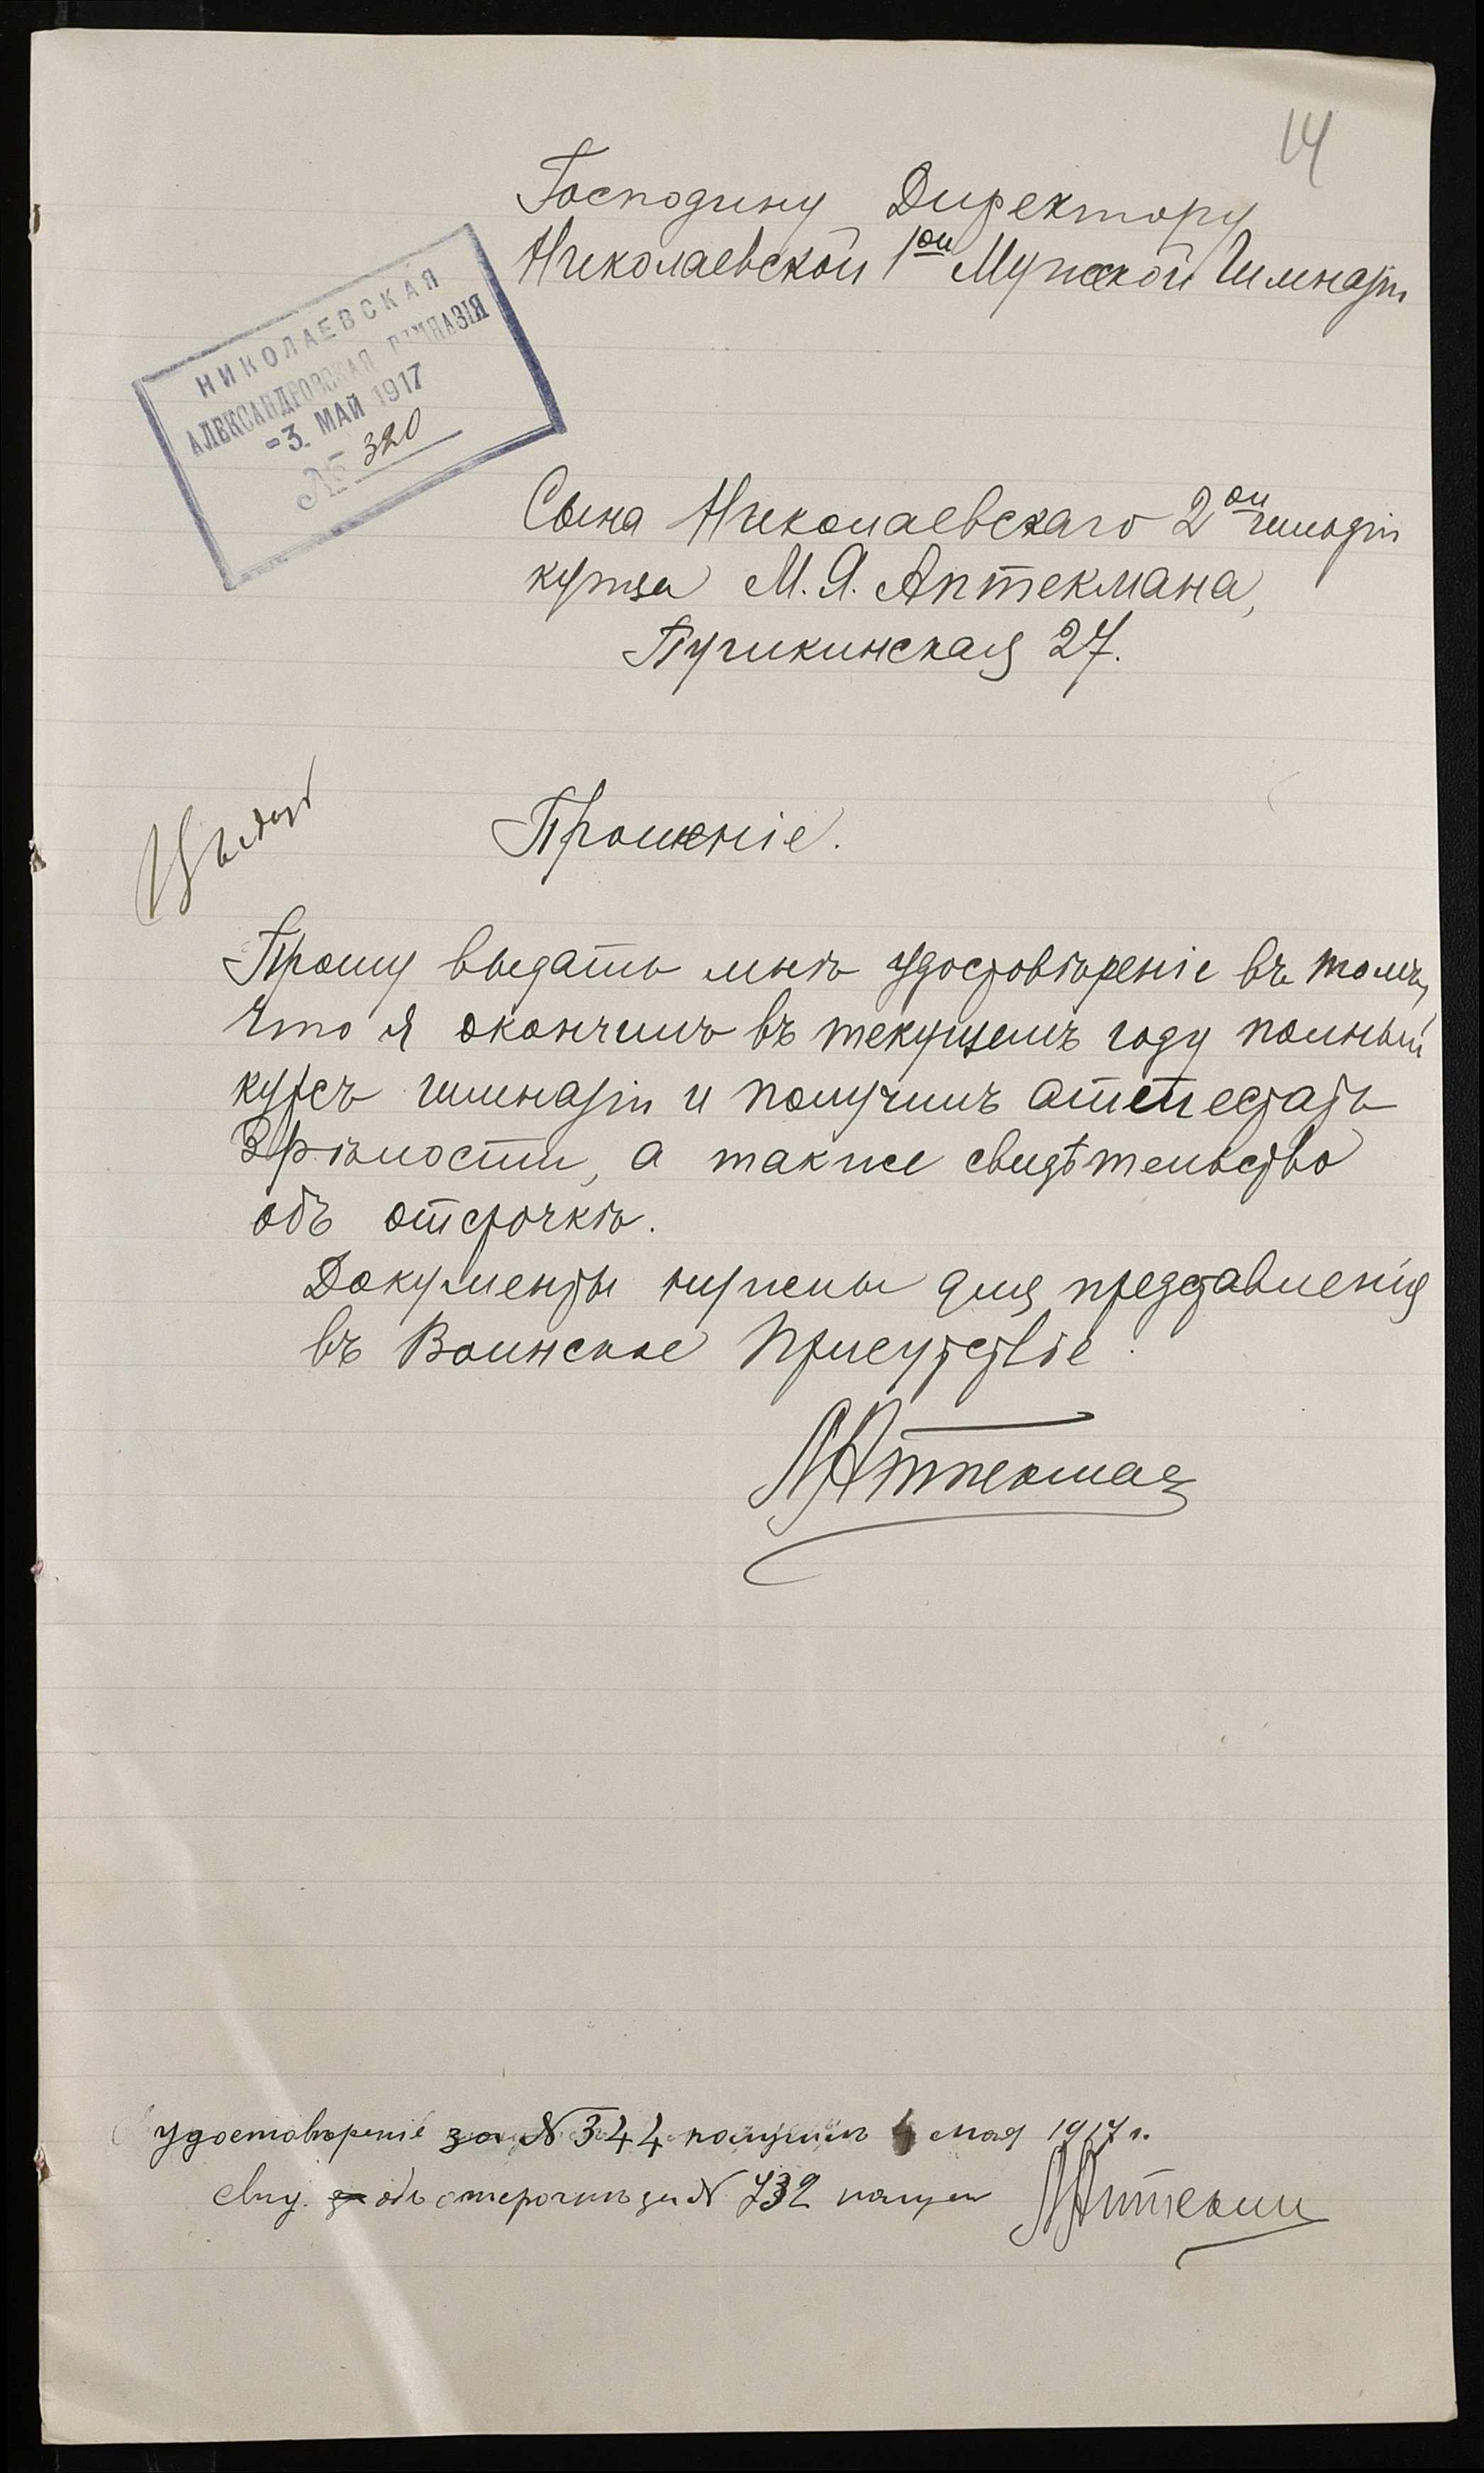 14
Господину Директору
Николаевской 1ой Мужской Гимназіи
НИКОЛАЕВСКАЯ
АЛЕКСАНДРОВСКАЯ ГИМНАЗІЯ
=3. МАЙ 1917
№ 320
Сына Николаевскаго 2ой гильдіи
купца М. Я. Аптекмана,
Пушкинская 27.
Прошеніе.
Прошу выдать мнѣ удостовѣреніе въ томъ,
что я окончилъ въ текущемъ году полный
курсъ гимназіи и получилъ аттестатъ
зрѣлости, а также свидѣтельство
объ отсрочкѣ.
Документы нужны для представленія
въ Воинское Присутствіе.
Аптекман
удостовѣреніе за № 344 получилъ мая 1917 г.
свид. объ отсрочкѣ за № 732 получ
Аптекман